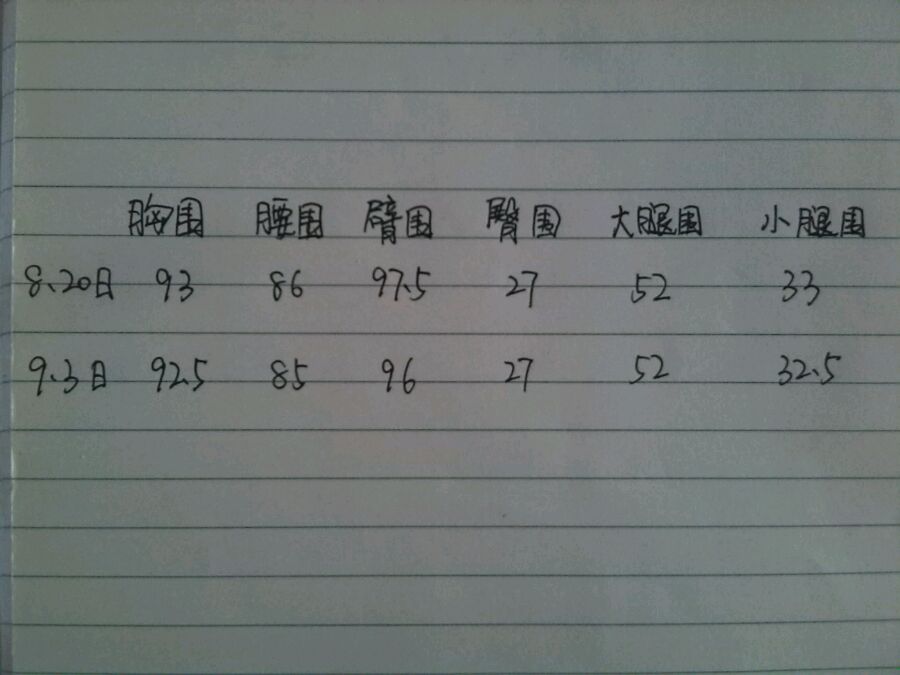 胸围 腰围 臂围 臀围 大腿围 小腿围
8、20日 93 86 97.5 27 52 33
9.3日 92.5 85 96 27 52 32.5